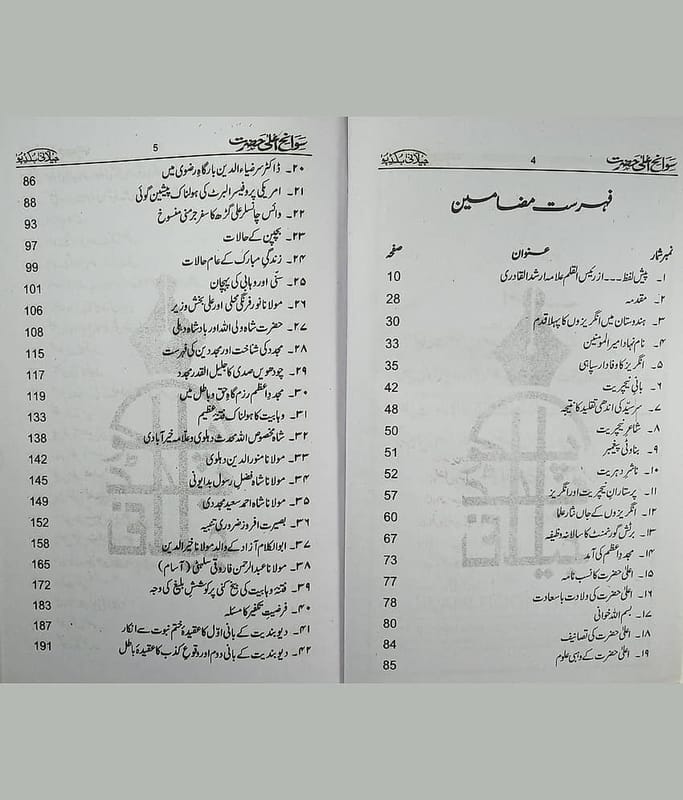 سوانح اعلیٰ حضرت 4 جیلانی بکڈپو
فہرست مضامین
نمبر شمار عنوان صفحہ
۱۔ پیش لفظ ۔۔۔ از رئیس القلم علامہ ارشد القادری 10
۲۔ مقدمہ 28
۳۔ ہندوستان میں انگریزوں کا پہلا قدم 30
۴۔ نام نہاد امیر المومنین 33
۵۔ انگریز کا وفادار سپاہی 35
۶۔ بانی نیچریت 42
۷۔ سرسیّد کی اندھی تقلید کا نتیجہ 48
۸۔ شاعر نیچریت 50
۹۔ بناوٹی پیغمبر 51
۱۰۔ ناشر دہریت 52
۱۱۔ پرستاران نیچریت اور انگریز 57
۱۲۔ انگریزوں کے جاں نثار علما 60
۱۳۔ برٹش گورنمنٹ کا سالانہ وظیفہ 67
۱۴۔ مجدد اعظم کی آمد 73
۱۵۔ اعلیٰ حضرت کا نسب نامہ 77
۱۶۔ اعلیٰ حضرت کی ولادت باسعادت 78
۱۷۔ بسم اللہ خوانی 80
۱۸۔ اعلیٰ حضرت کی تصانیف 84
۱۹۔ اعلیٰ حضرت کے وہبی علوم 85
سوانح اعلیٰ حضرت 5 جیلانی بکڈپو
۲۰۔ ڈاکٹر سر ضیاء الدین بارگاہ رضوی میں 86
۲۱۔ امریکی پروفیسر البرٹ کی ہولناک پیشین گوئی 88
۲۲۔ وائس چانسلر علی گڑھ کا سفر جرمنی منسوخ 93
۲۳۔ بچپن کے حالات 97
۲۴۔ زندگی مبارک کے عام حالات 99
۲۵۔ سنّی اور وہابی کی پہچان 101
۲۶۔ مولانا نور فرنگی محلی اور علی بخش وزیر 106
۲۷۔ حضرت شاہ ولی اللہ اور بادشاہ دہلی 108
۲۸۔ مجدد کی شناخت اور مجددین کی فہرست 115
۲۹۔ چودھویں صدی کا جلیل القدر مجدد 117
۳۰۔ مجدد اعظم رزم گاہ حق و باطل میں 119
۳۱۔ وہابیت کا ہولناک فتنۂ عظیم 133
۳۲۔ شاہ مخصوص اللہ محدث دہلوی و علامہ خیرآبادی 138
۳۳۔ مولانا منور الدین دہلوی 142
۳۴۔ مولانا شاہ فضل رسول بدایونی 145
۳۵۔ مولانا شاہ احمد سعید مجددی 149
۳۶۔ بصیرت افروز ضروری تنبیہ 152
۳۷۔ ابوالکلام آزاد کے والد مولانا خیر الدین 158
۳۸۔ مولانا عبدالرحمن فاروقی سلہٹی (آسام) 165
۳۹۔ فتنۂ وہابیت کی بیخ کنی پر کوشش بلیغ کی وجہ 172
۴۰۔ فرضیت تکفیر کا مسئلہ 183
۴۱۔ دیوبندیت کے بانی اوّل کا عقیدۂ ختم نبوت سے انکار 187
۴۲۔ دیوبندیت کے بانی دوم اور وقوع کذب کا عقیدۂ باطل 191